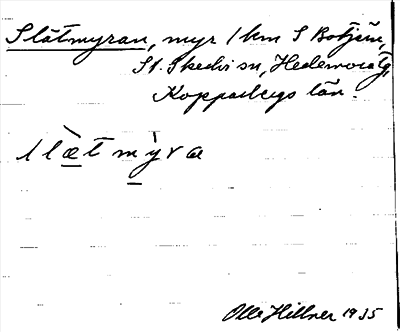 Slätmyran, myr 1 km S Botjärn,
St. Skedvi sn, Hedemora tg,
Kopparbergs län.
slæ̀tmỳra
Olle Hillner 1935